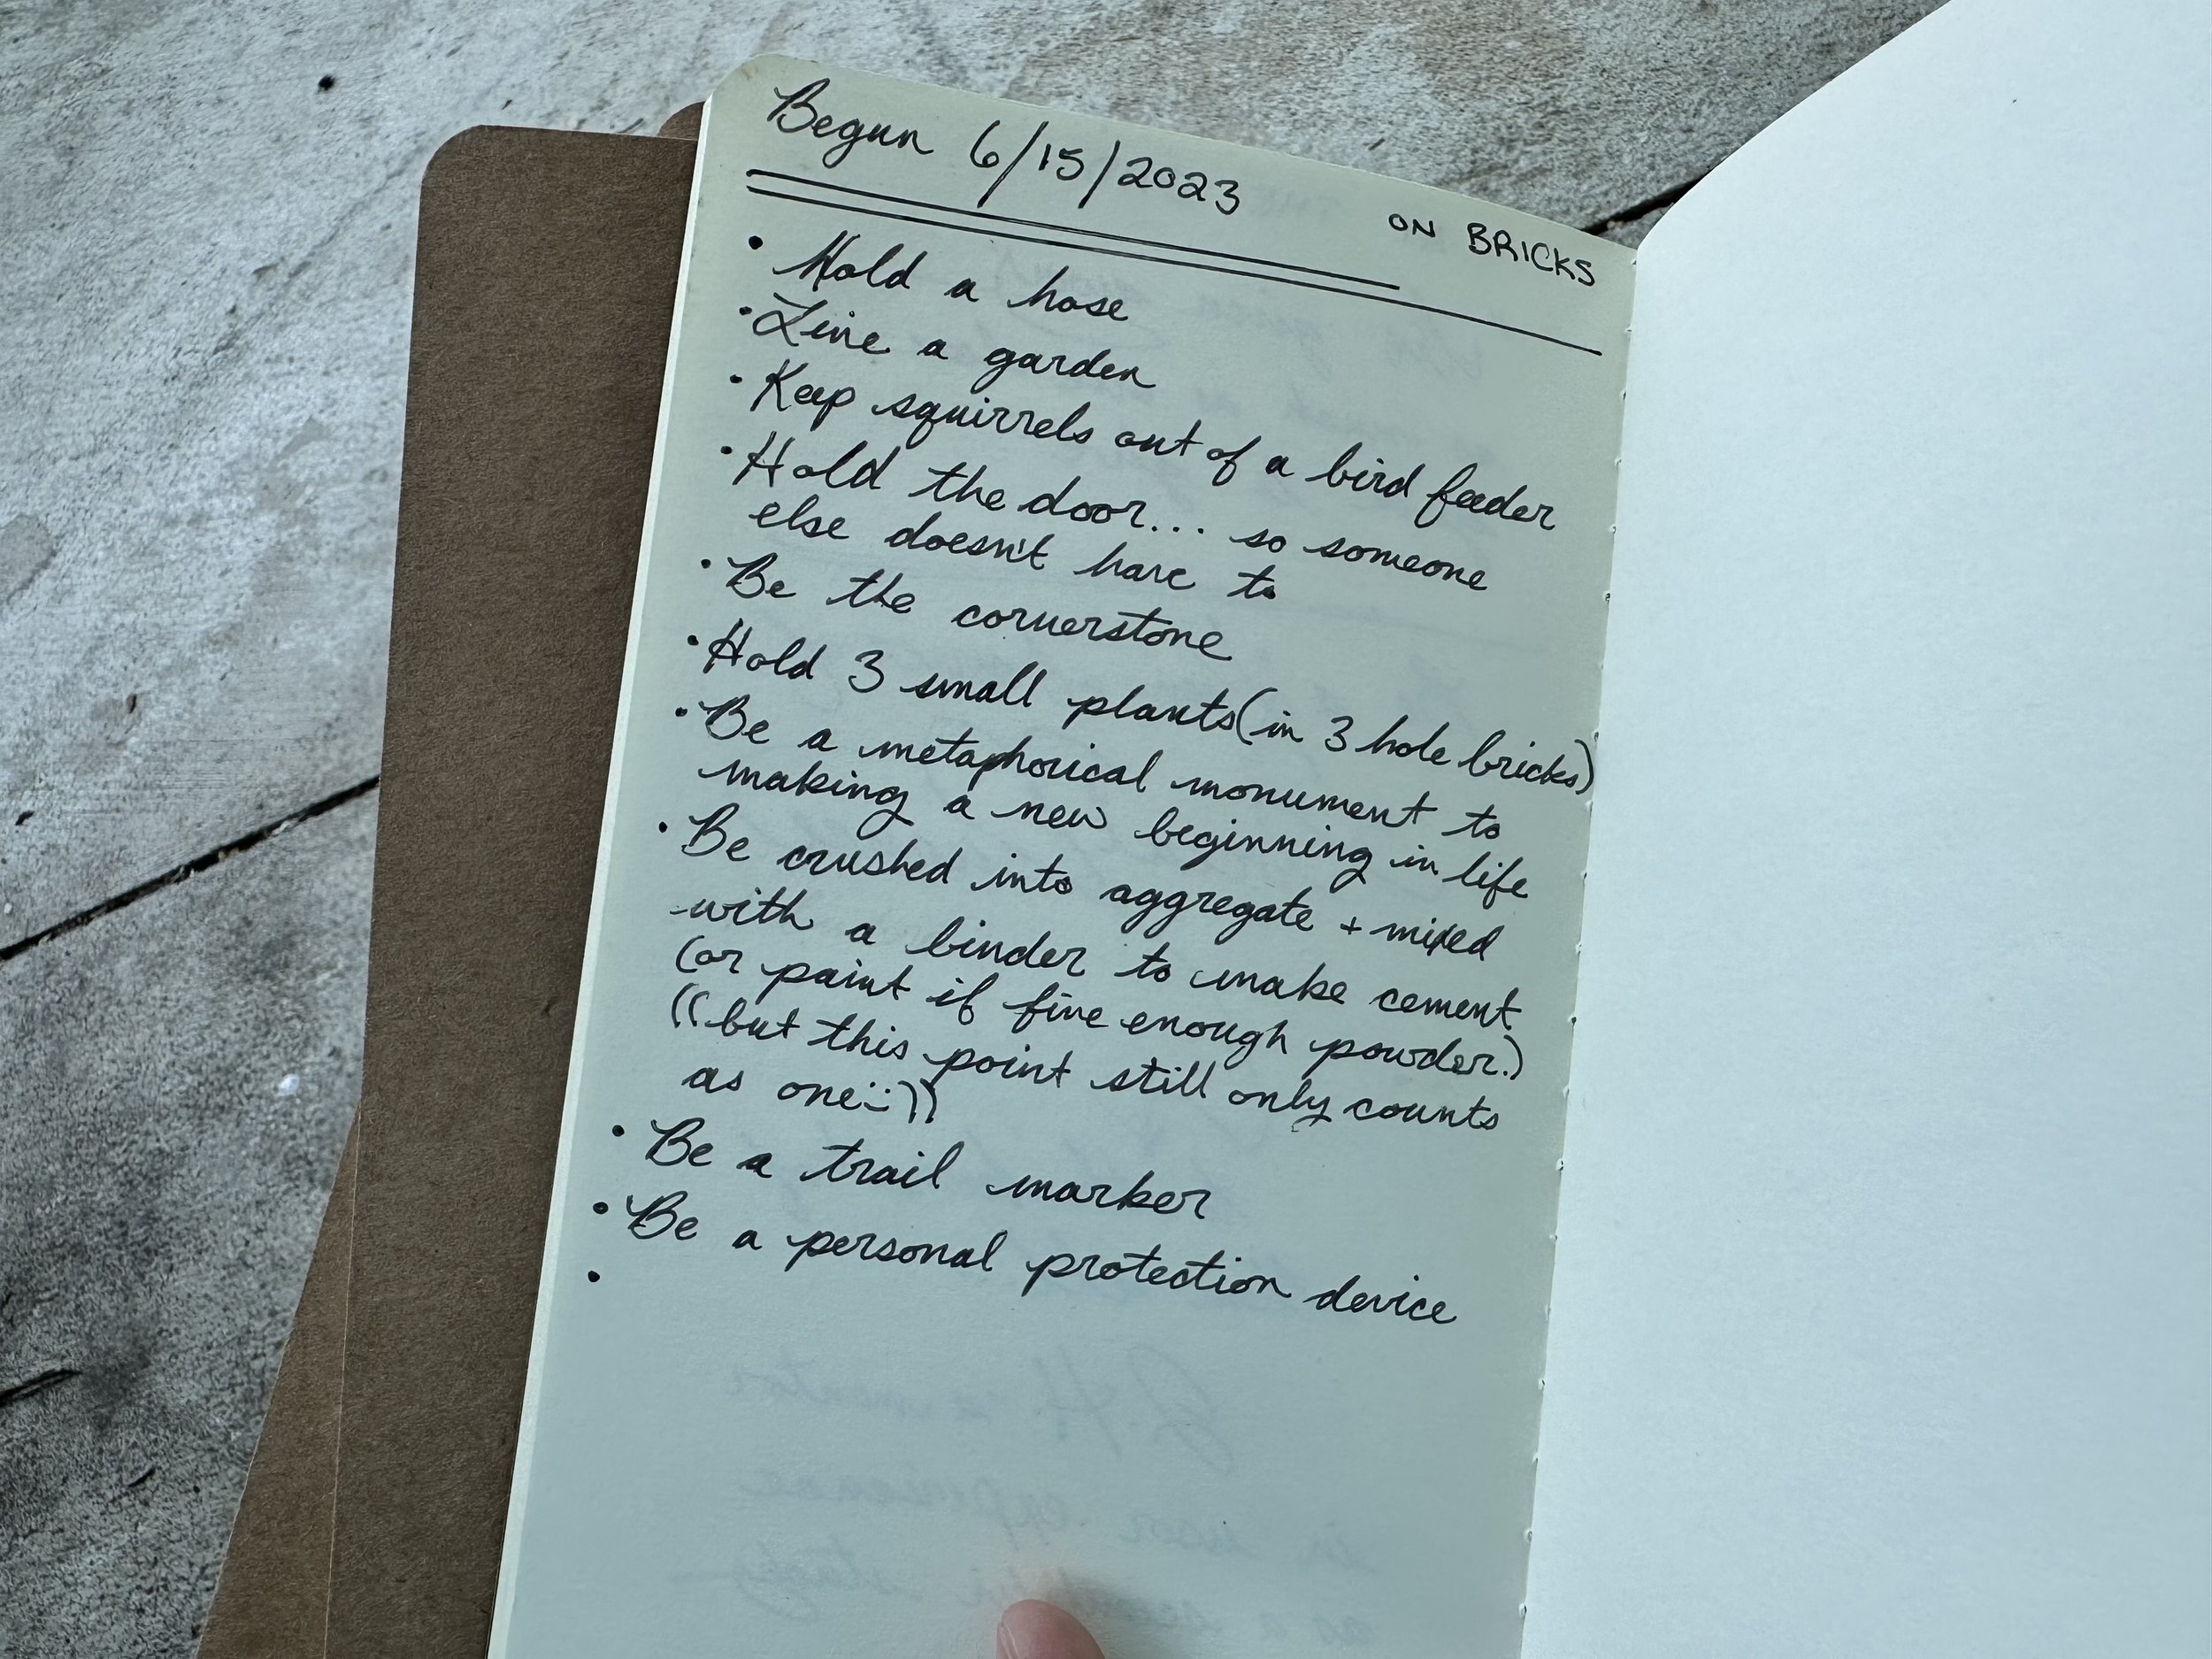 Begun 6/15/2023
ON BRICKS
• Hold a hose
• Line a garden
• Keep squirrels out of a bird feeder
• Hold the door... so someone
else doesn't have to
• Be the cornerstone
• Hold 3 small plants (in 3 hole bricks)
• Be a metaphorical monument to
making a new beginning in life
• Be crushed into aggregate + mixed
with a binder to make cement
(or paint if fine enough powder.)
((but this point still only counts
as one :))
• Be a trail marker
• Be a personal protection device
•